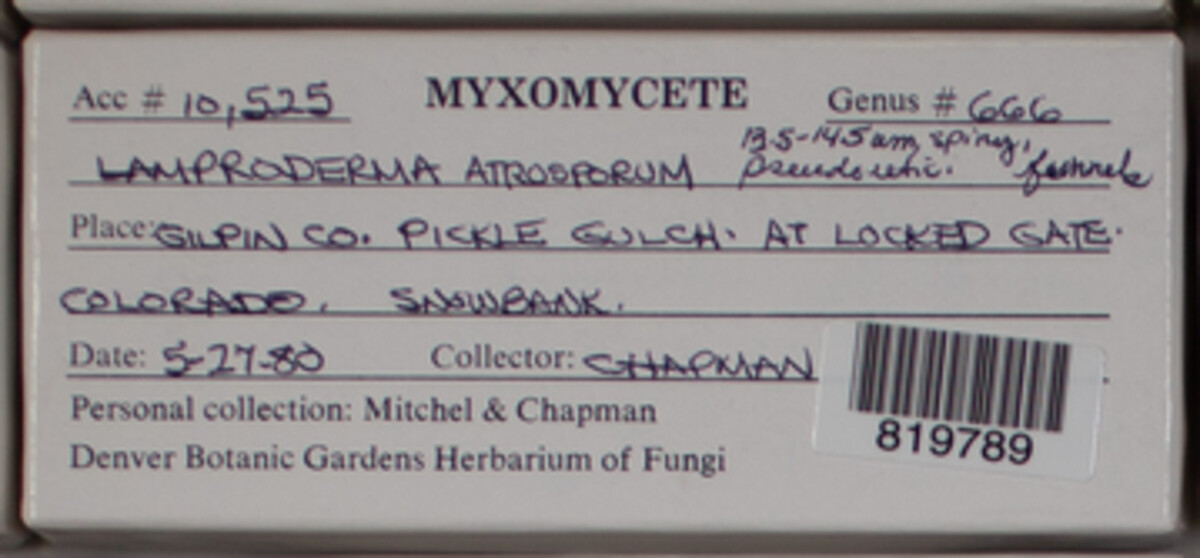 Acc # 10,525 MYXOMYCETE Genus # 666
13.5-14.5 um, spiny,
LAMPRODERMA ATROSPORUM pseudoretic.
Place: GILPIN CO. PICKLE GULCH. AT LOCKED GATE.
COLORADO. SNOWBANK.
Date: 5-27-80 Collector: CHAPMAN
Personal collection: Mitchel & Chapman
Denver Botanic Gardens Herbarium of Fungi
819789